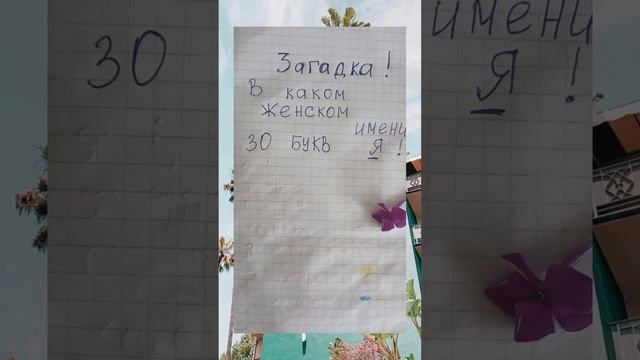 Загадка!
В каком
женском
имени
30 БУКВ Я!
30
имени
Я!